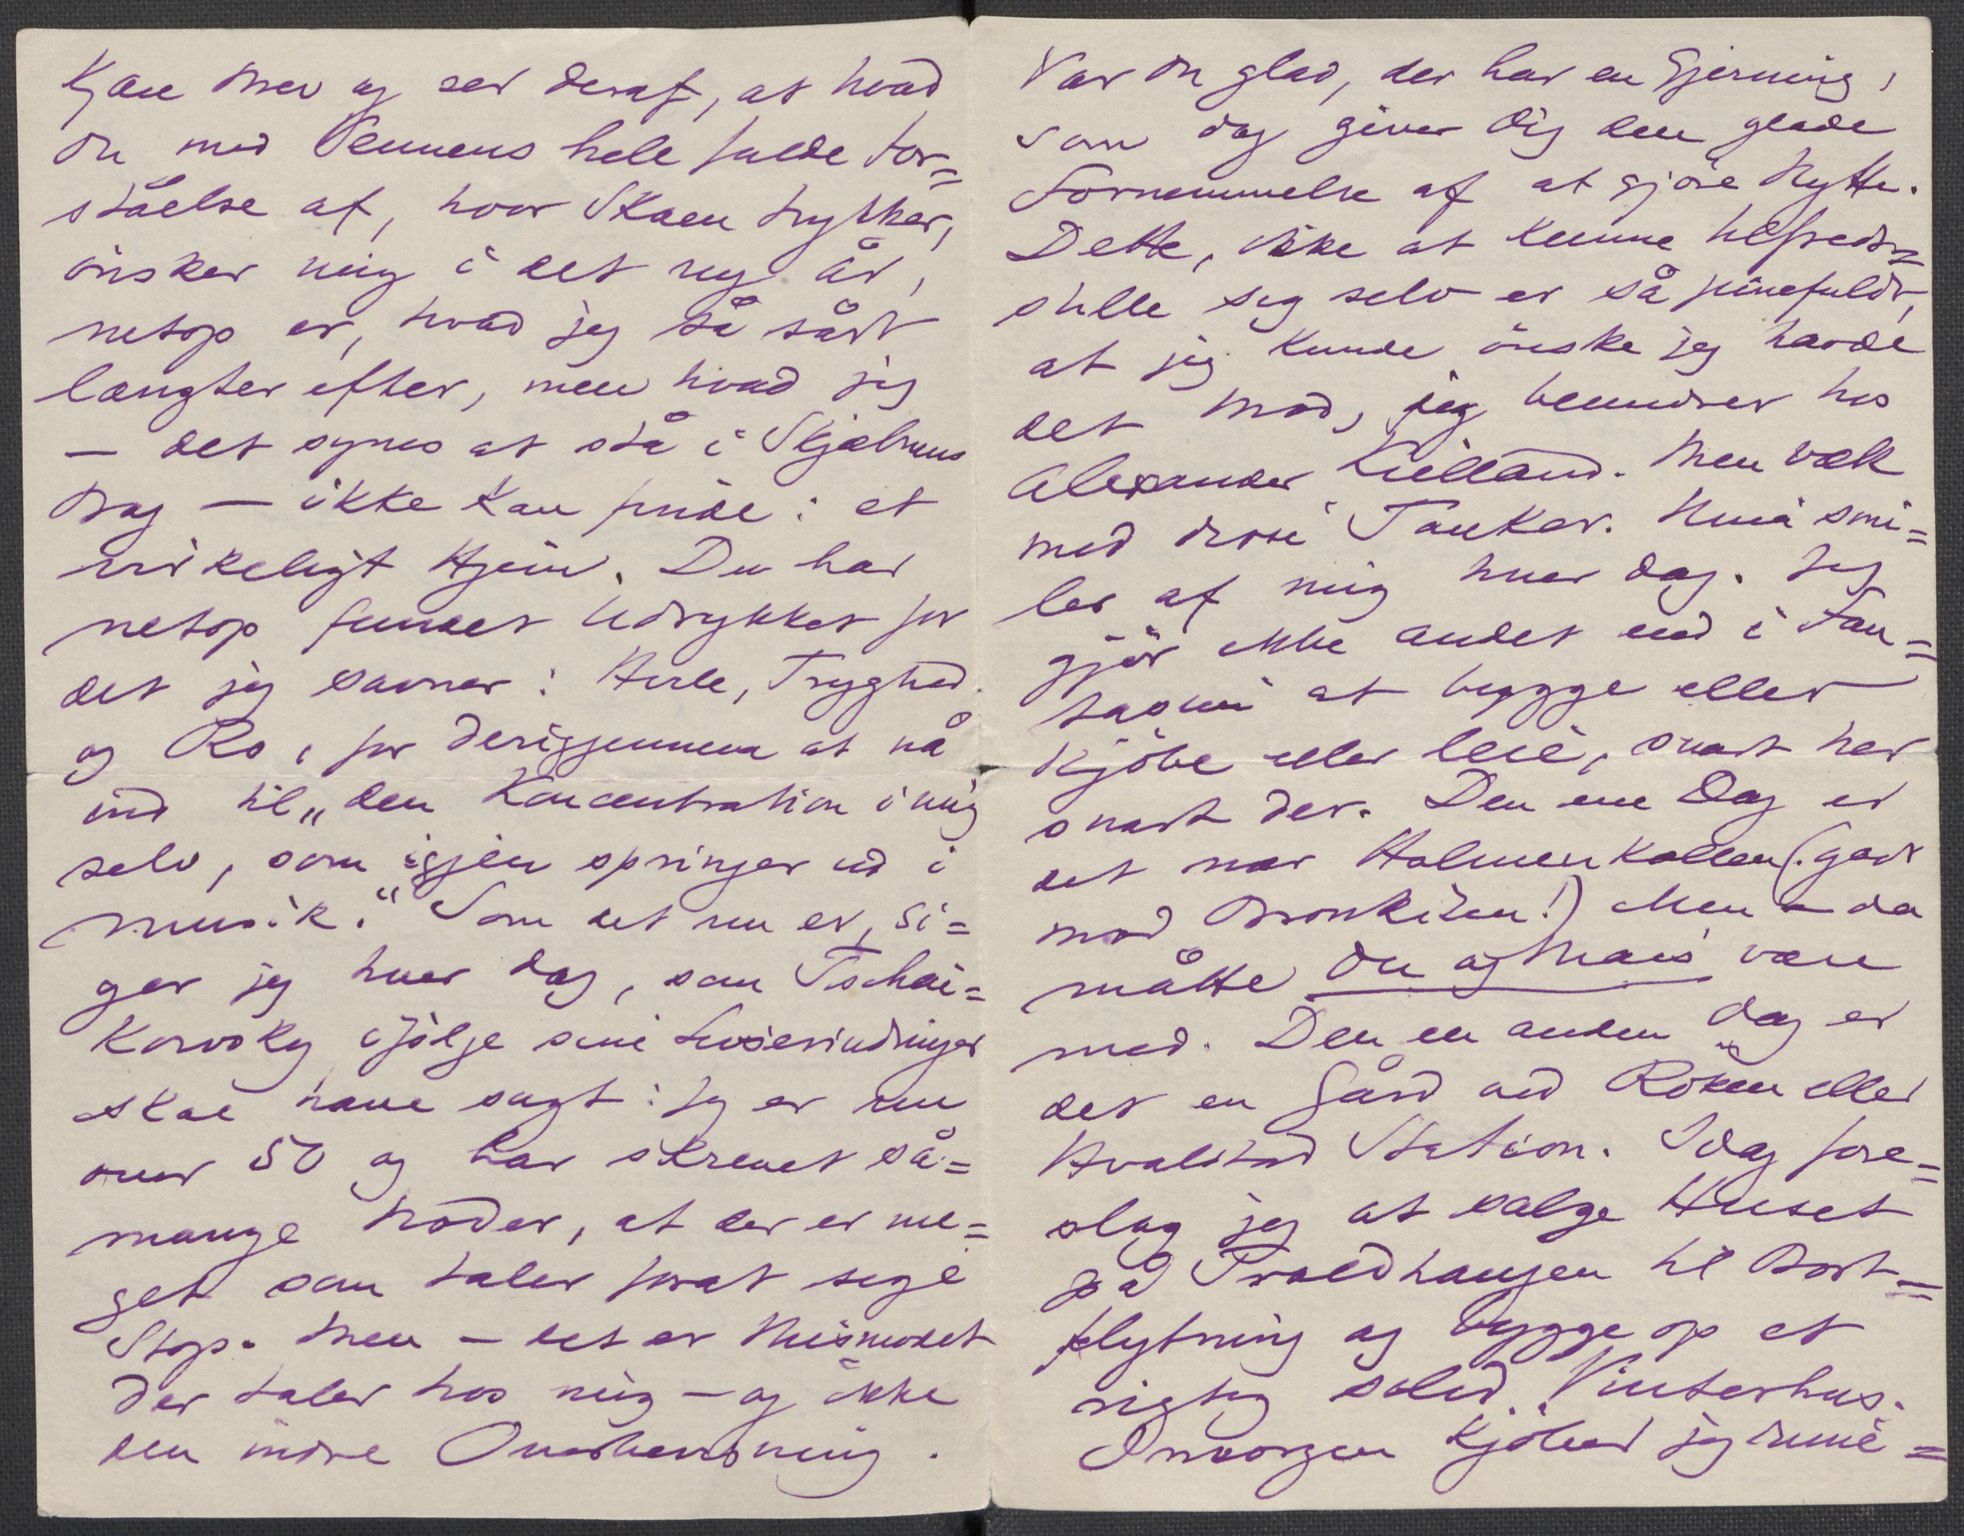 kjære Brev og ser deraf, at hvad
Du med Vennens hele fulde For=
ståelse af, hvor Skoen trykker,
ønsker mig i det ny år,
netop er, hvad jeg så sårt
længter efter, men hvad jeg
– det synes at stå i Skjæbnens
Bog – ikke kan finde: et
virkeligt Hjem. Du har
netop fundet Udtrykket for
det jeg savner: Hvile, Tryghed
og Ro, for derigjennem at nå
ind til „den Koncentration i mig
selv, som igjen springer ud i
Musik." Som det nu er, si=
ger jeg hver Dag, som Tschai=
kowsky ifølge sine Livserindringer
skal have sagt: Jeg er nu
over 50 og har skrevet så=
mange Noder, at der er me=
get som taler forat sige
Stop. Men – det er Mismodet
der taler hos mig – og ikke
den indre Overbevisning.
Vær Du glad, der har en Gjerning,
som dog giver Dig den glade
Fornemmelse af at gjøre Nytte.
Dette, ikke at kunne tilfreds=
stille sig selv er så pinefuldt,
at jeg kunde ønske jeg havde
det Mod, jeg beundrer hos
Alexander Kielland. Men væk
med disse Tanker. Nina smi=
ler af mig hver Dag. Jeg
gjør ikke andet end i Fan=
tasien at bygge eller
kjøbe eller leie, snart her
snart der. Den ene Dag er
det nær Holmenkollen (: godt
mod Bronkiten!) Men – da
måtte Du og Mais være
med. Den en anden Dag er
det en Gård ved Röken eller
Hvalstad Station. Idag fore=
slog jeg at sælge Huset
på Troldhaugen til Bort=
flytning og bygge op et
rigtig solid Vinterhus.
Imorgen kjøber jeg rime=